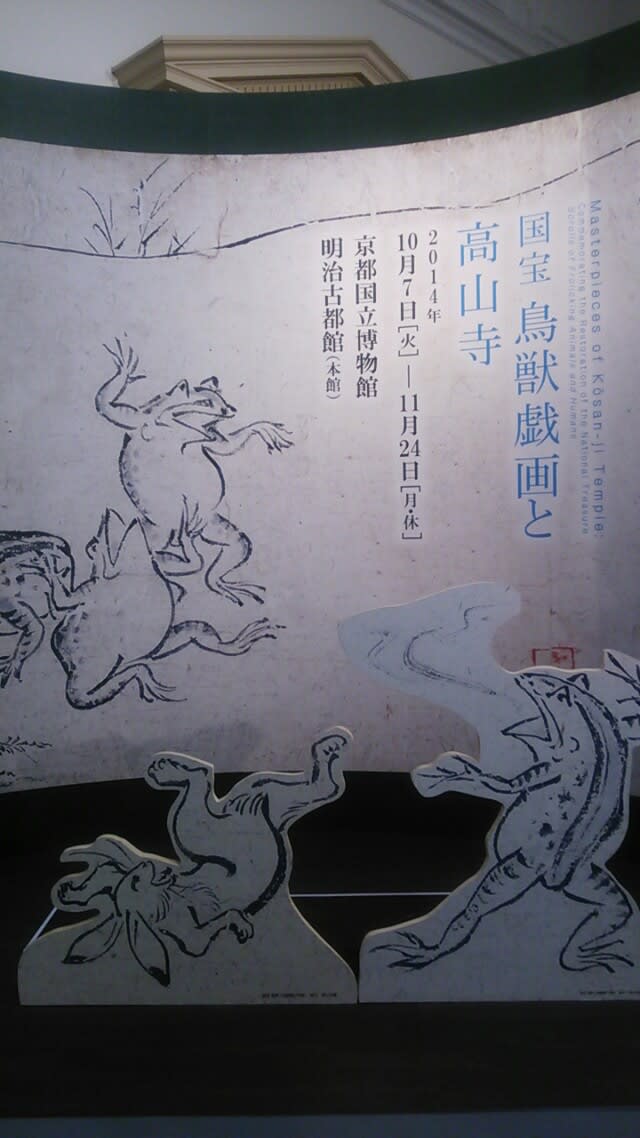 Masterpieces of Kōsan-ji Temple:
Commemorating the Restoration of the National Treasure
Scrolls of Frolicking Animals and Humans
国宝 鳥獣戯画と
高山寺
2014年
10月7日[火]—11月24日[月・休]
京都国立博物館
明治古都館(本館)